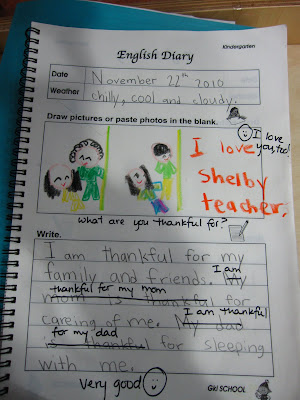 Kindergarten
English Diary
Date November 22th 2010
Weather chilly, cool and cloudy.
Draw pictures or paste photos in the blank.
I love you, too!
I love
Shelby
teacher.
what are you thankful for?
Write.
I am thankful for my
family and friends. My I am
thankful for my mom
mom is thankful for
careing of me. My dad I am thankful
for my dad
is thankful for sleeping
with me.
very good
GKI SCHOOL